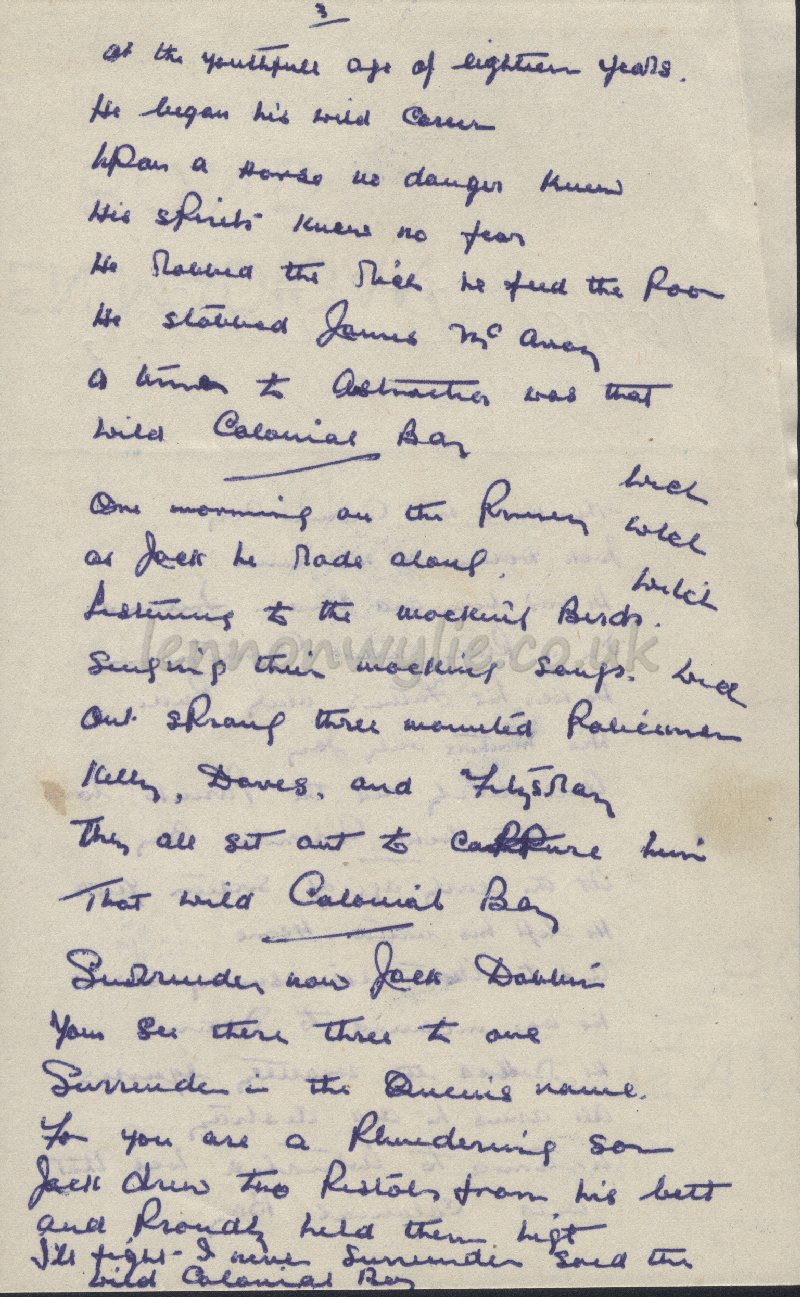 3
at the youthfull age of eighteen years.
He began his wild Career
upon a Horse no danger knew
His spirits knew no fear
He Robbed the Rich he feed the Poor
He stabbed James Mc Avoy
a to was that
wild Colonial Boy
One morning on the
as Jack he Rode along.
Listening to the mocking Birds.
Singing their mocking songs.
Out sprang three mounted Policemen
Kelly, Daves, and Fitzsray
They all set out to cappure him
That wild Colonial Boy
Surrender now Jack
You see there three to one
Surrender in the Queens name.
For you are a Plundering son
Jack drew two Pistols from his belt
and Proudly held them
I'll fight I never Surrender said the
wild Colonial Boy
lennonwylie.co.uk